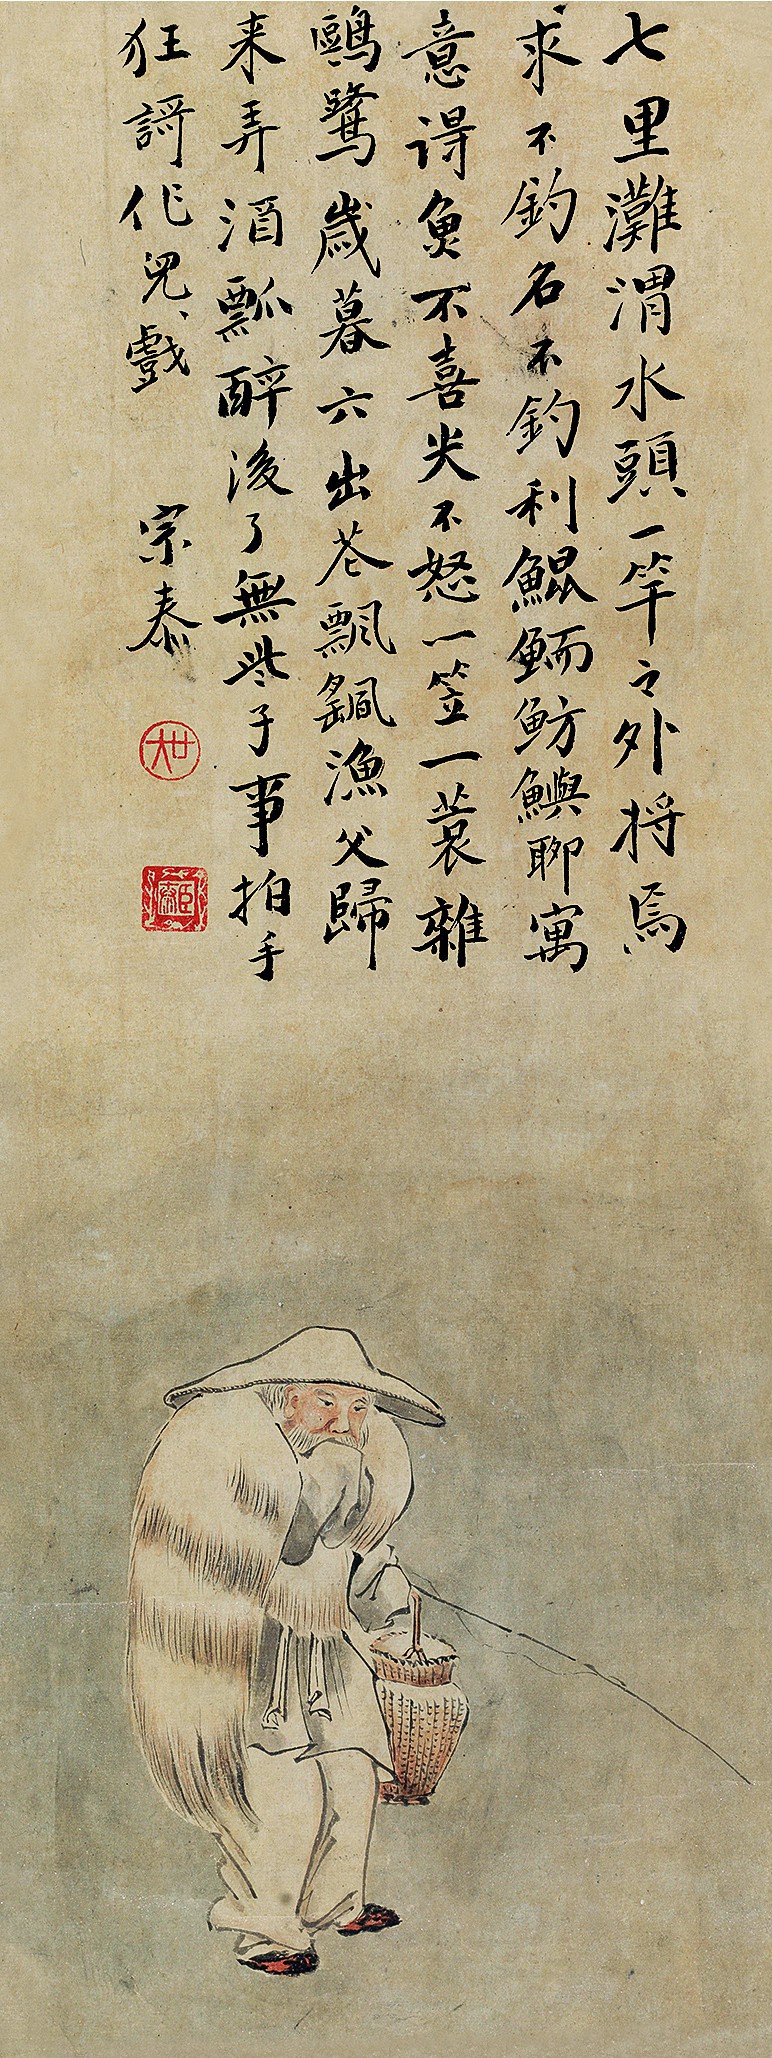 七里灘渭水頭一竿々外将焉
求不釣名不釣利鯤鮞魴鱮聊寓
意得魚不喜失不怒一笠一蓑雜
鷗鷺歳暮六出花飄颻漁父歸
来弄酒瓢醉後了無些子事拍手
狂謌作兒戲
宗泰